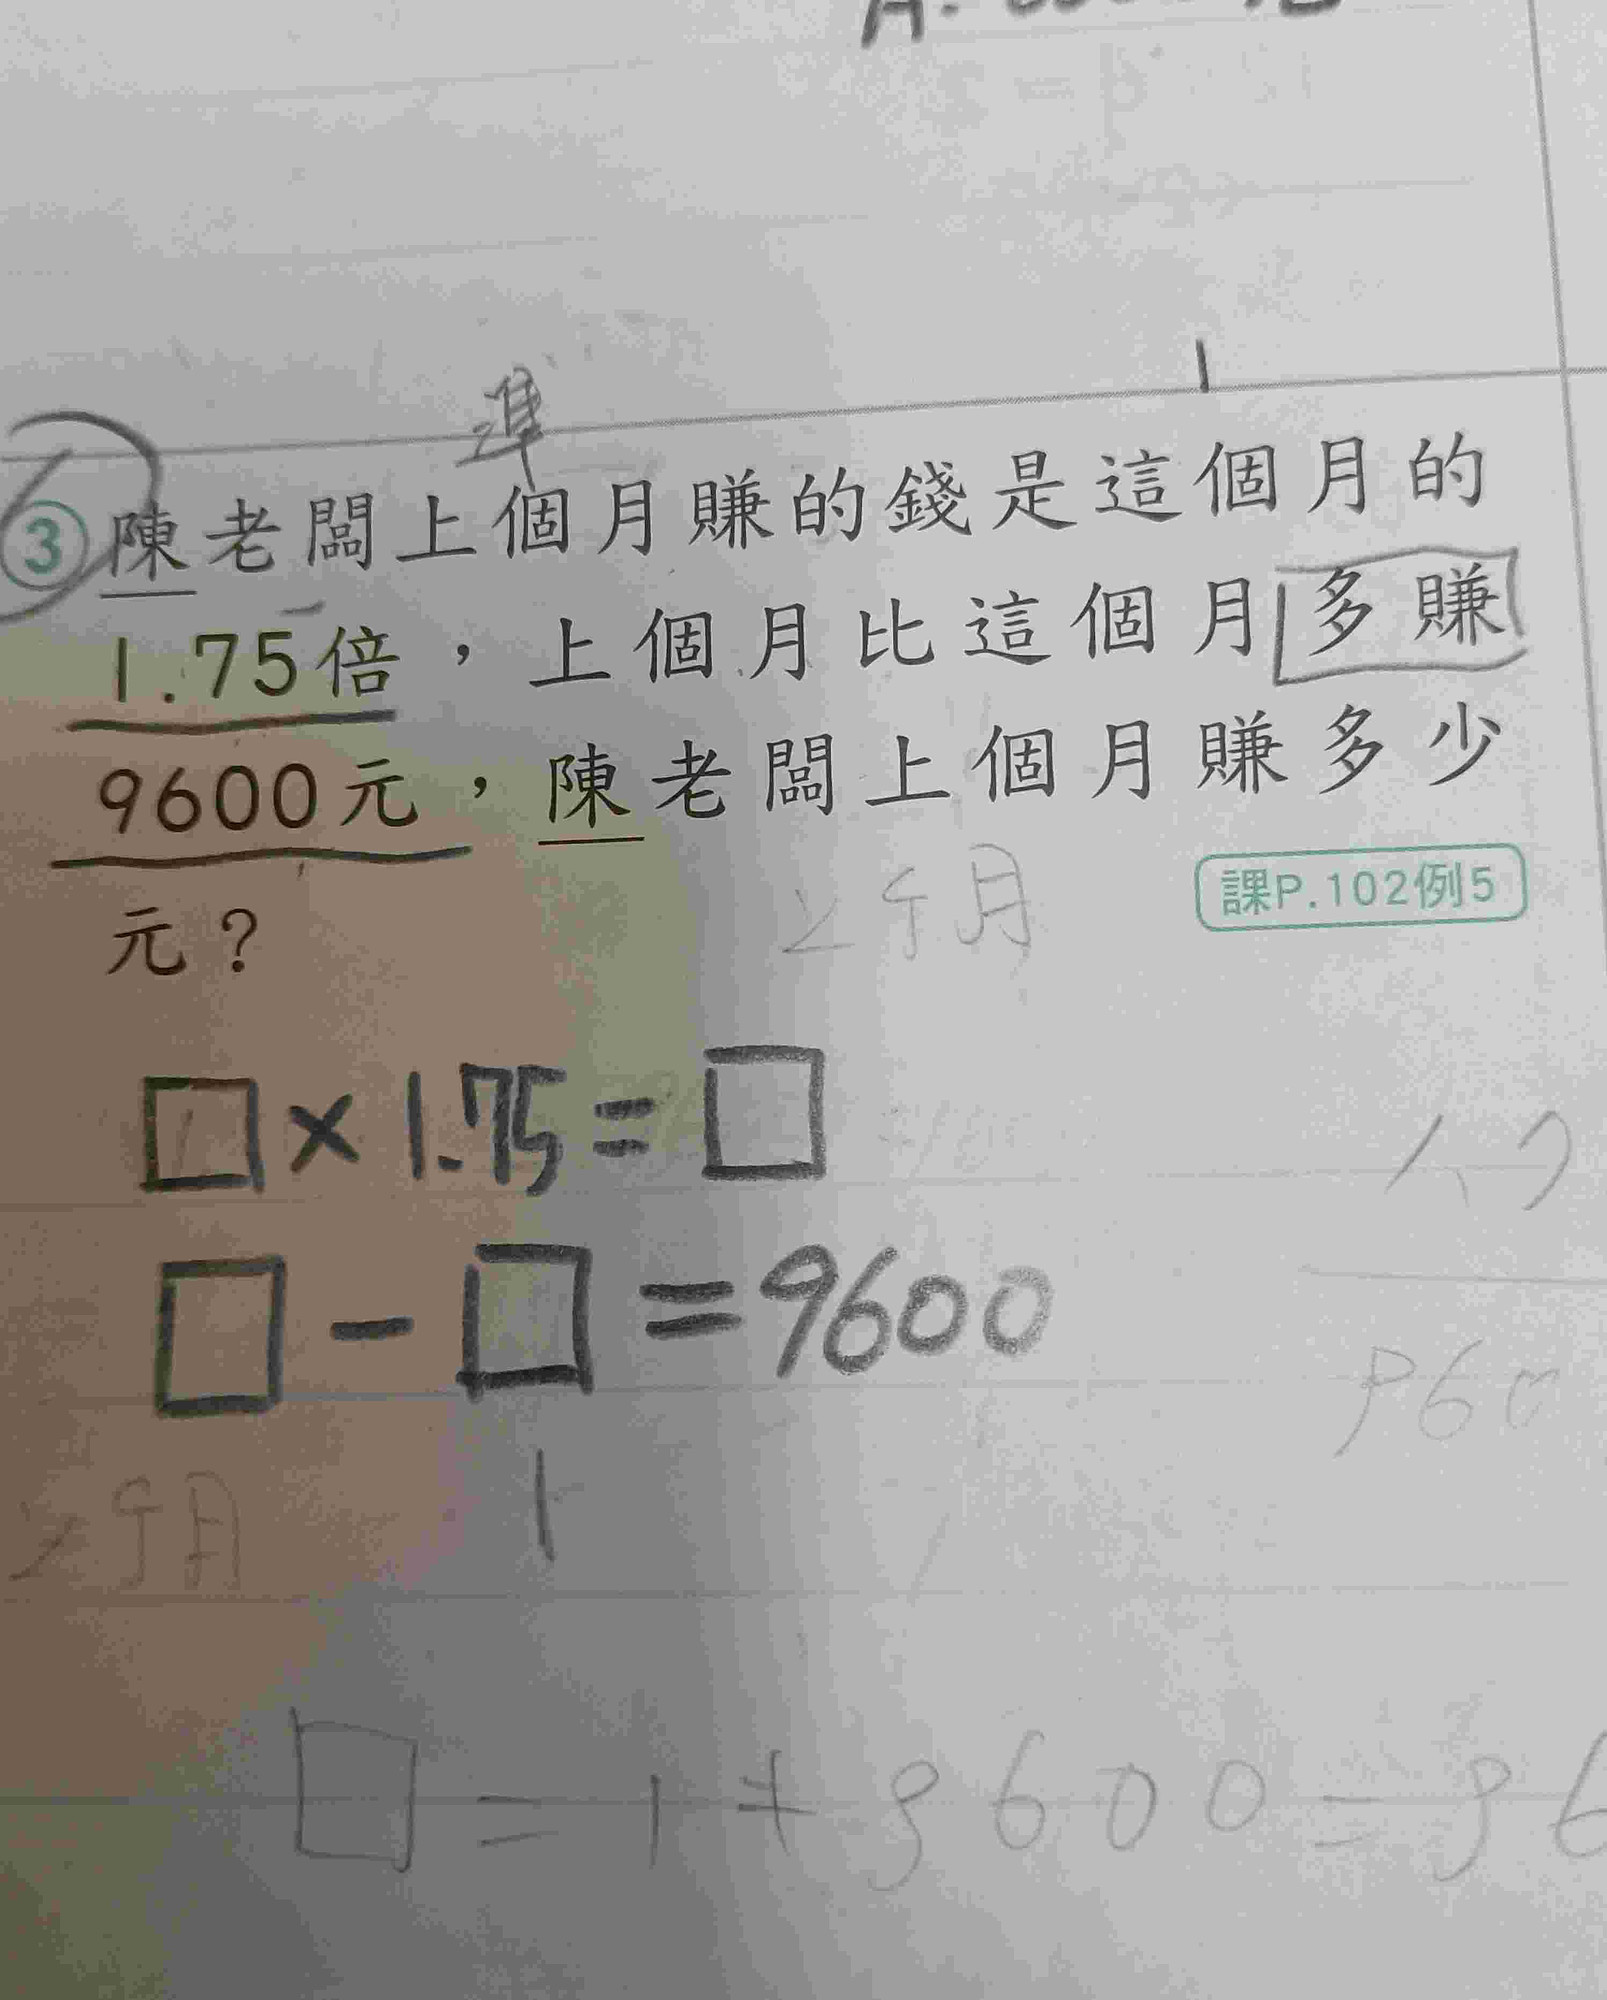 準
1
③陳老闆上個月賺的錢是這個月的
1.75倍，上個月比這個月多賺
9600元，陳老闆上個月賺多少
元？
課P.102例5
上个月
□×1.75=□
□-□=9600
960
上个月
1
□=1+9600=96